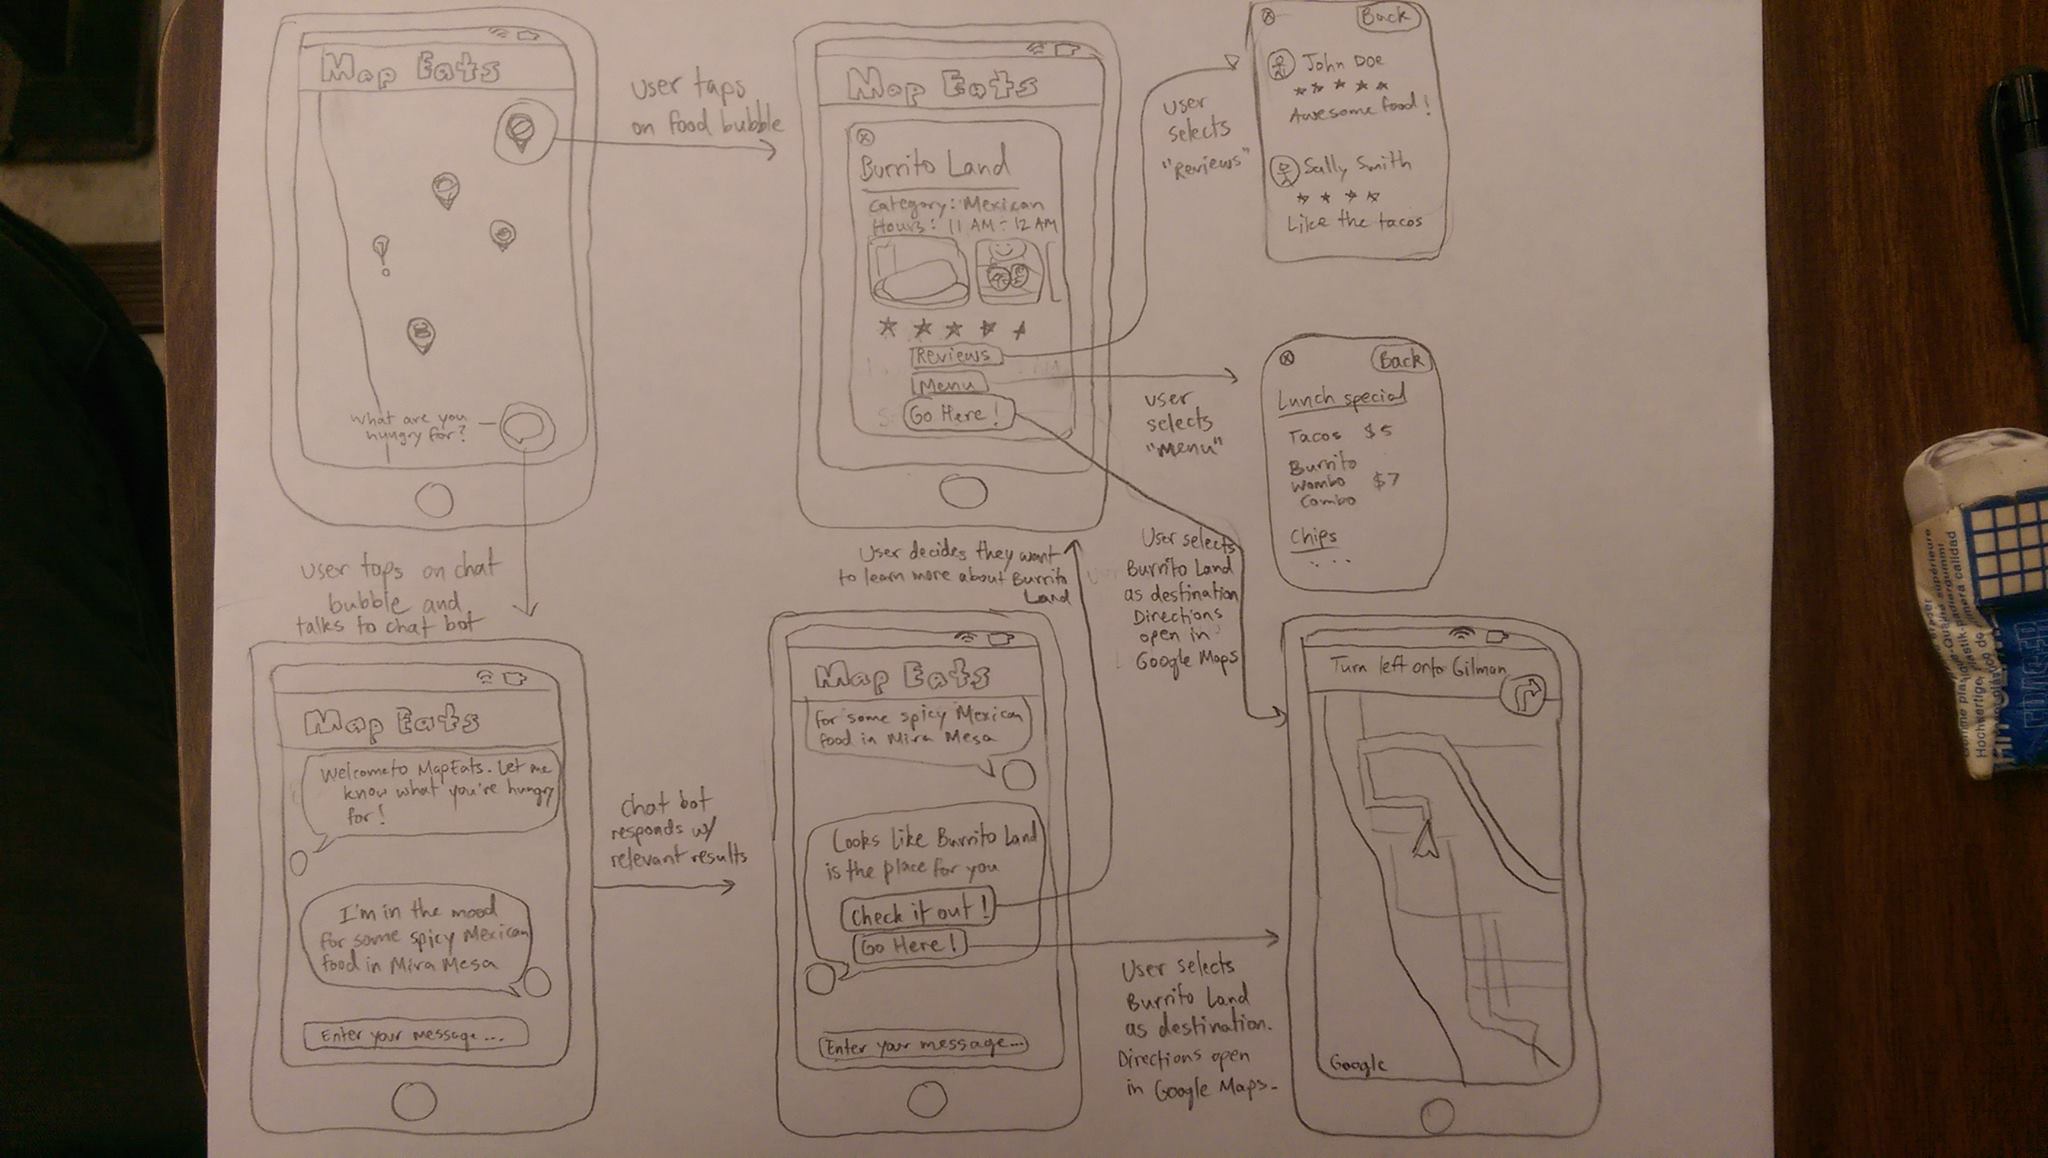 Map Eats
What are you
hungry for?
User taps
on food bubble
Map Eats
Burrito Land
Category: Mexican
Hours: 11 AM - 12 AM
Reviews
Menu
Go Here!
User
selects
"Reviews"
Back
John Doe
Awesome food!
Sally Smith
Like the tacos
User
selects
"menu"
Back
Lunch special
Tacos $5
Burrito
Wombo $7
Combo
Chips
...
User taps on chat
bubble and
talks to chat bot
Map Eats
Welcome to MapEats. Let me
know what you're hungry
for!
I'm in the mood
for some spicy Mexican
food in Mira Mesa
Enter your message...
Chat bot
responds w/
relevant results
User decides they want
to learn more about Burrito
Land
Map Eats
for some spicy Mexican
food in Mira Mesa
Looks like Burrito Land
is the place for you
Check it out!
Go Here!
Enter your message...
User selects
Burrito Land
as destination
Directions
open in
Google Maps
User selects
Burrito Land
as destination.
Directions open
in Google Maps.
Turn left onto Gilman
Google